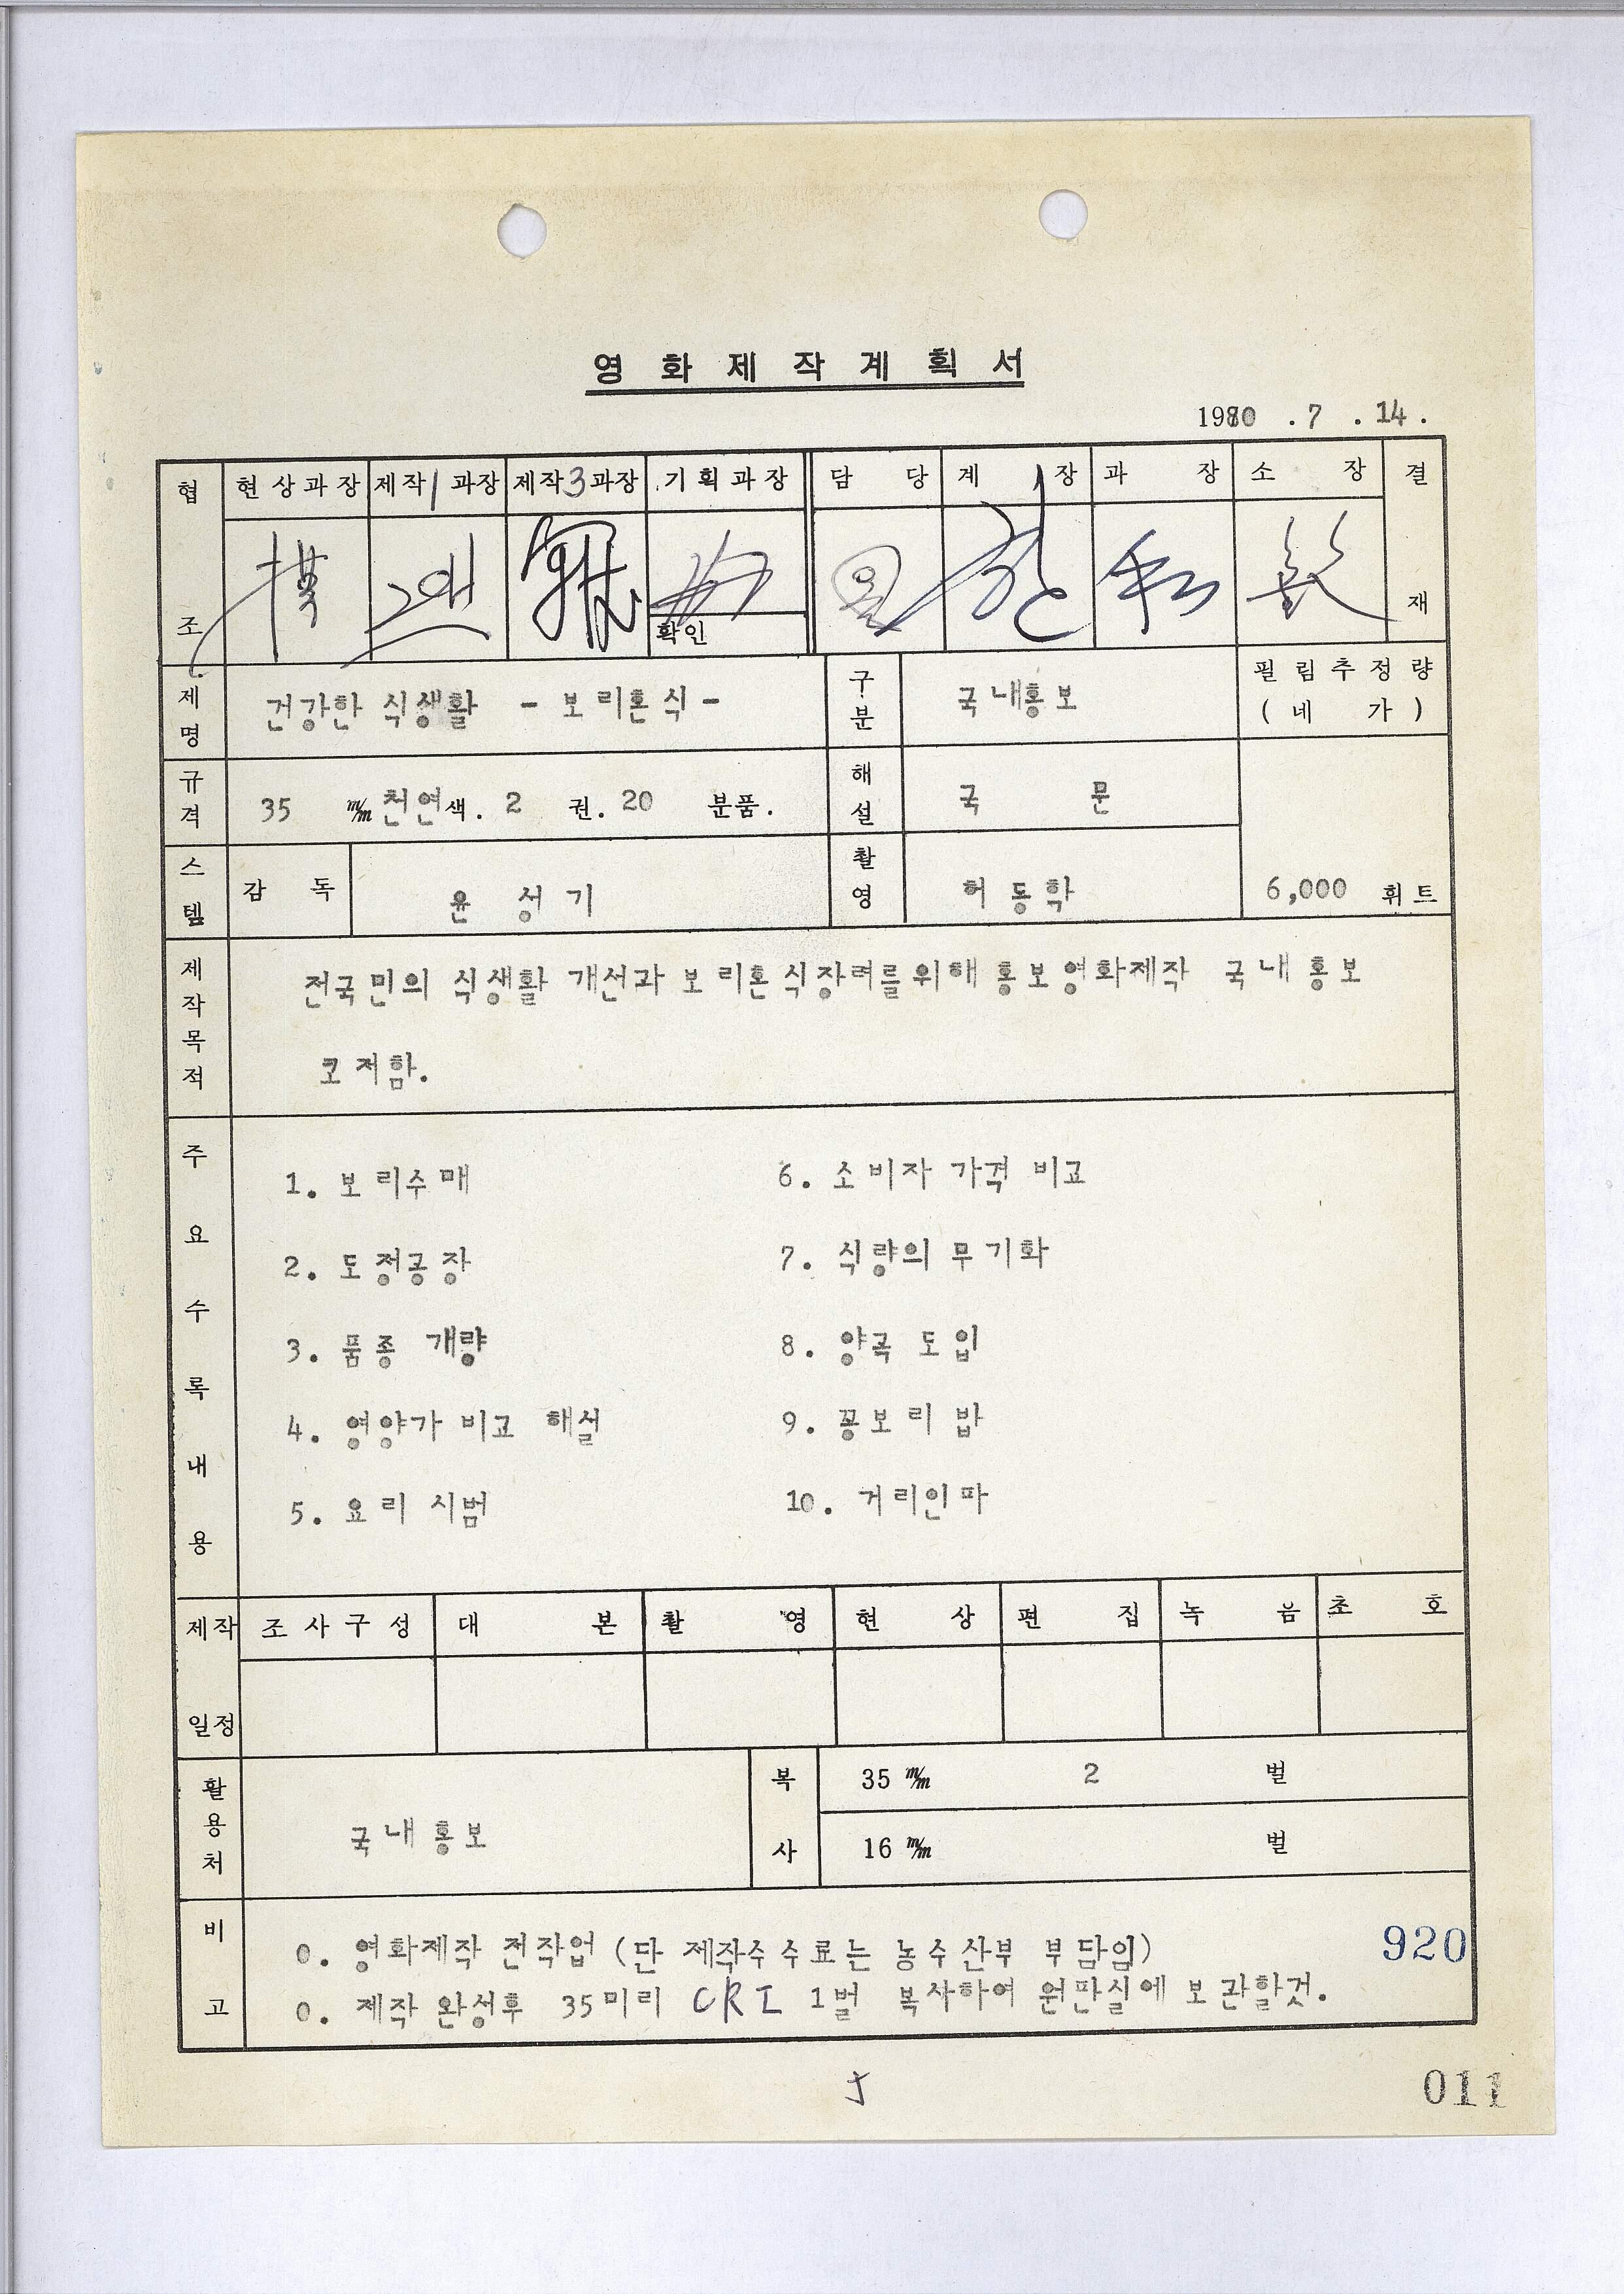 영화제작계획서
1980 . 7 . 14 .
협조 현상과장 제작1과장 제작3과장 기획과장 담당 계장 과장 소장 결재
확인
제명 건강한 식생활 - 보리혼식 - 구분 국내홍보 필림추정량 (네가)
규격 35 m/m 천연색. 2 권. 20 분품. 해설 국문
스템 감독 윤성기 촬영 허동학 6,000 휘트
제작목적 전국민의 식생활 개선과 보리혼식장려를위해 홍보영화제작 국내홍보
코저함.
주요수록내용
1. 보리수매
2. 도정공장
3. 품종 개량
4. 영양가 비교 해설
5. 요리 시범
6. 소비자 가격 비교
7. 식량의 무기화
8. 양곡 도입
9. 꽁보리 밥
10. 거리인파
제작일정 조사구성 대본 촬영 현상 편집 녹음 초호
활용처 국내홍보 복사 35 m/m 2 벌
16 m/m 벌
비고
0. 영화제작 전작업 (단 제작수수료는 농수산부 부담임)
0. 제작 완성후 35미리 CRI 1벌 복사하여 원판실에 보관할것.
920
011